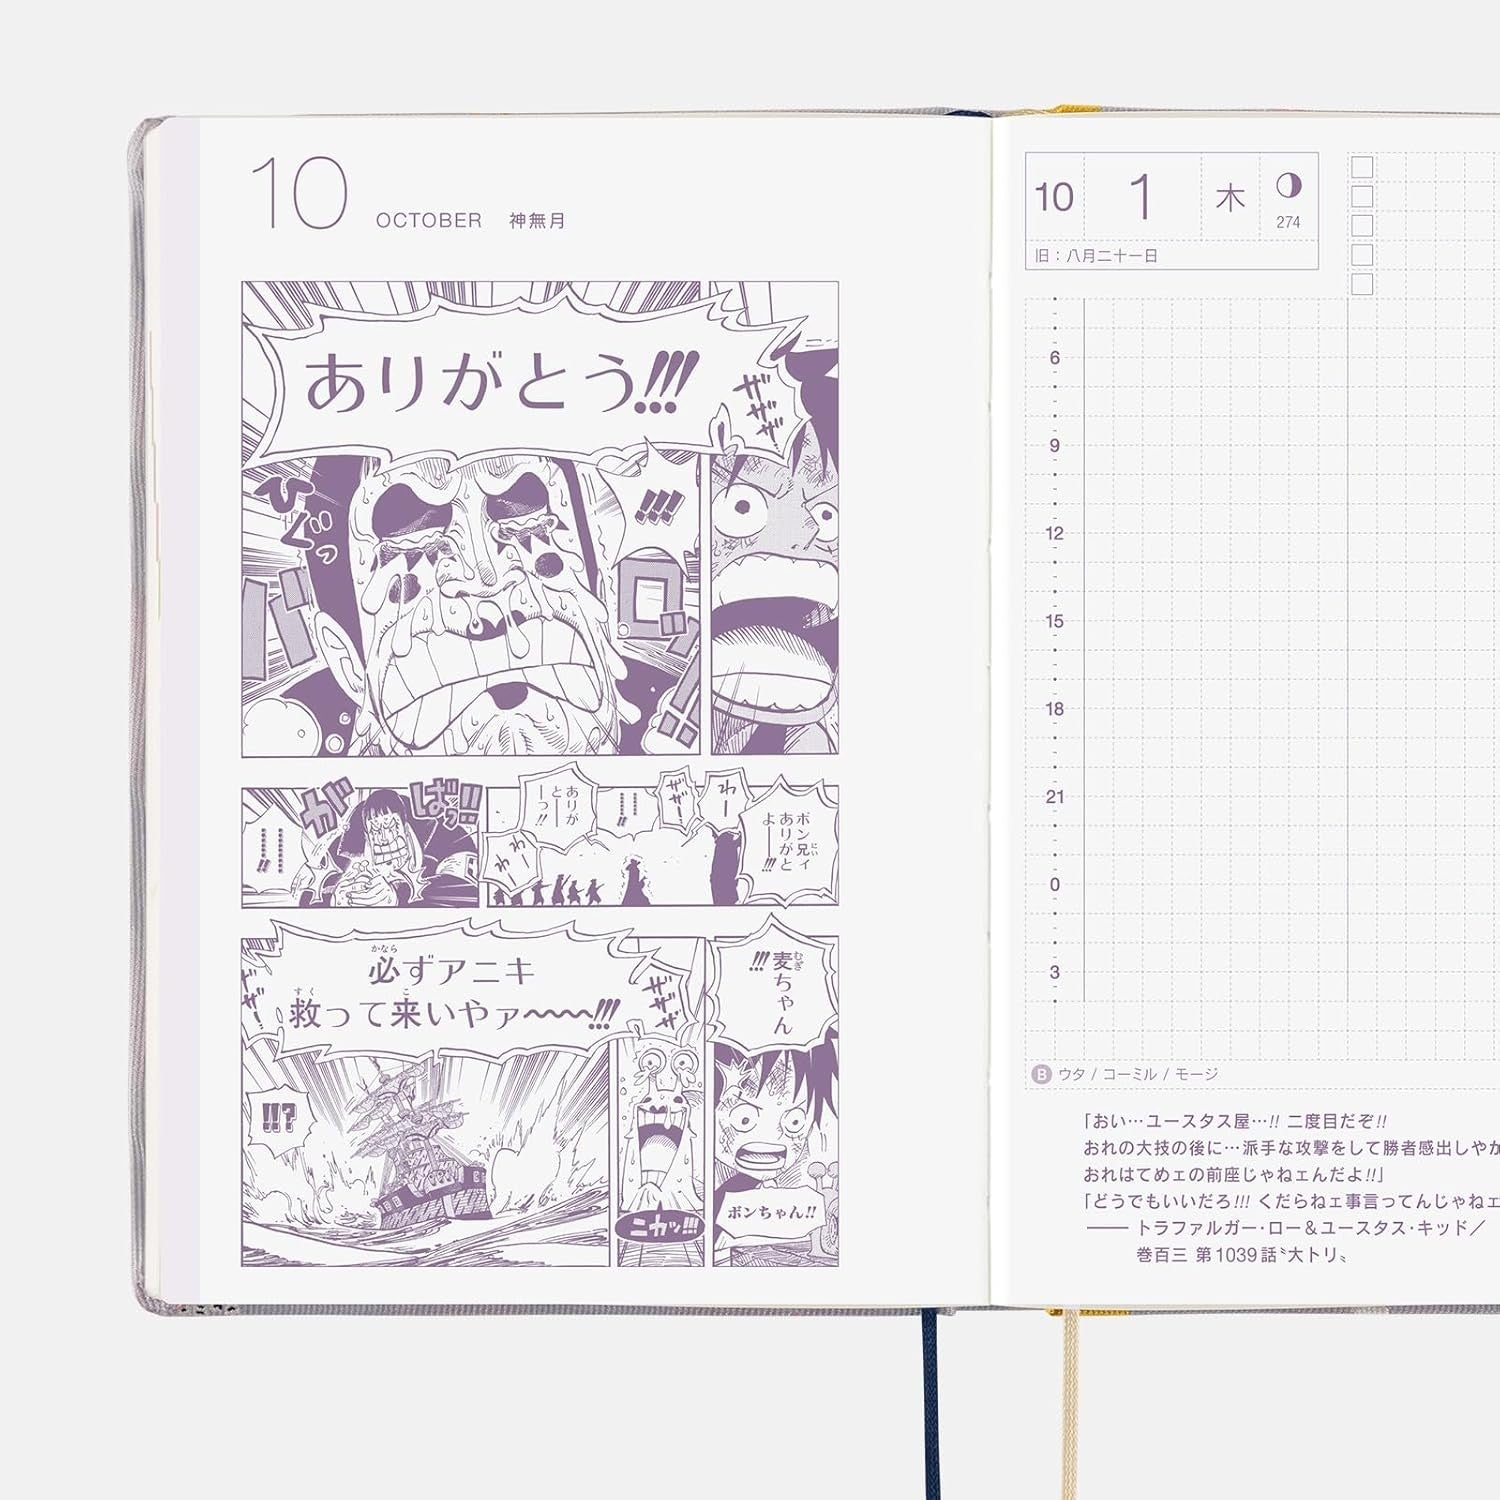 10 OCTOBER 神無月
ありがとう!!!
ザザザ
ひぐっ
!!!
バロッ!!
ガ
ばっ!!
…………!!
ありがとーーっ!!
………!!
ザザー
わー
わー
わー
ボン兄ィありがとよーー!!!
にい
かなら
必ずアニキ
すく こ
救って来いやァ〜〜〜!!!
ザザー
ザザザ
麦ちゃん!!!
むぎ
!!?
ニカッ!!!
ボンちゃん!!
10 1 木
274
旧：八月二十一日
6
9
12
15
18
21
0
3
B ウタ / コーミル / モージ
「おい…ユースタス屋…!! 二度目だぞ!!
おれの大技の後に…派手な攻撃をして勝者感出しやが
おれはてめェの前座じゃねェんだよ!!」
「どうでもいいだろ!!! くだらねェ事言ってんじゃねェ
── トラファルガー・ロー＆ユースタス・キッド／
巻百三 第1039話〝大トリ〟